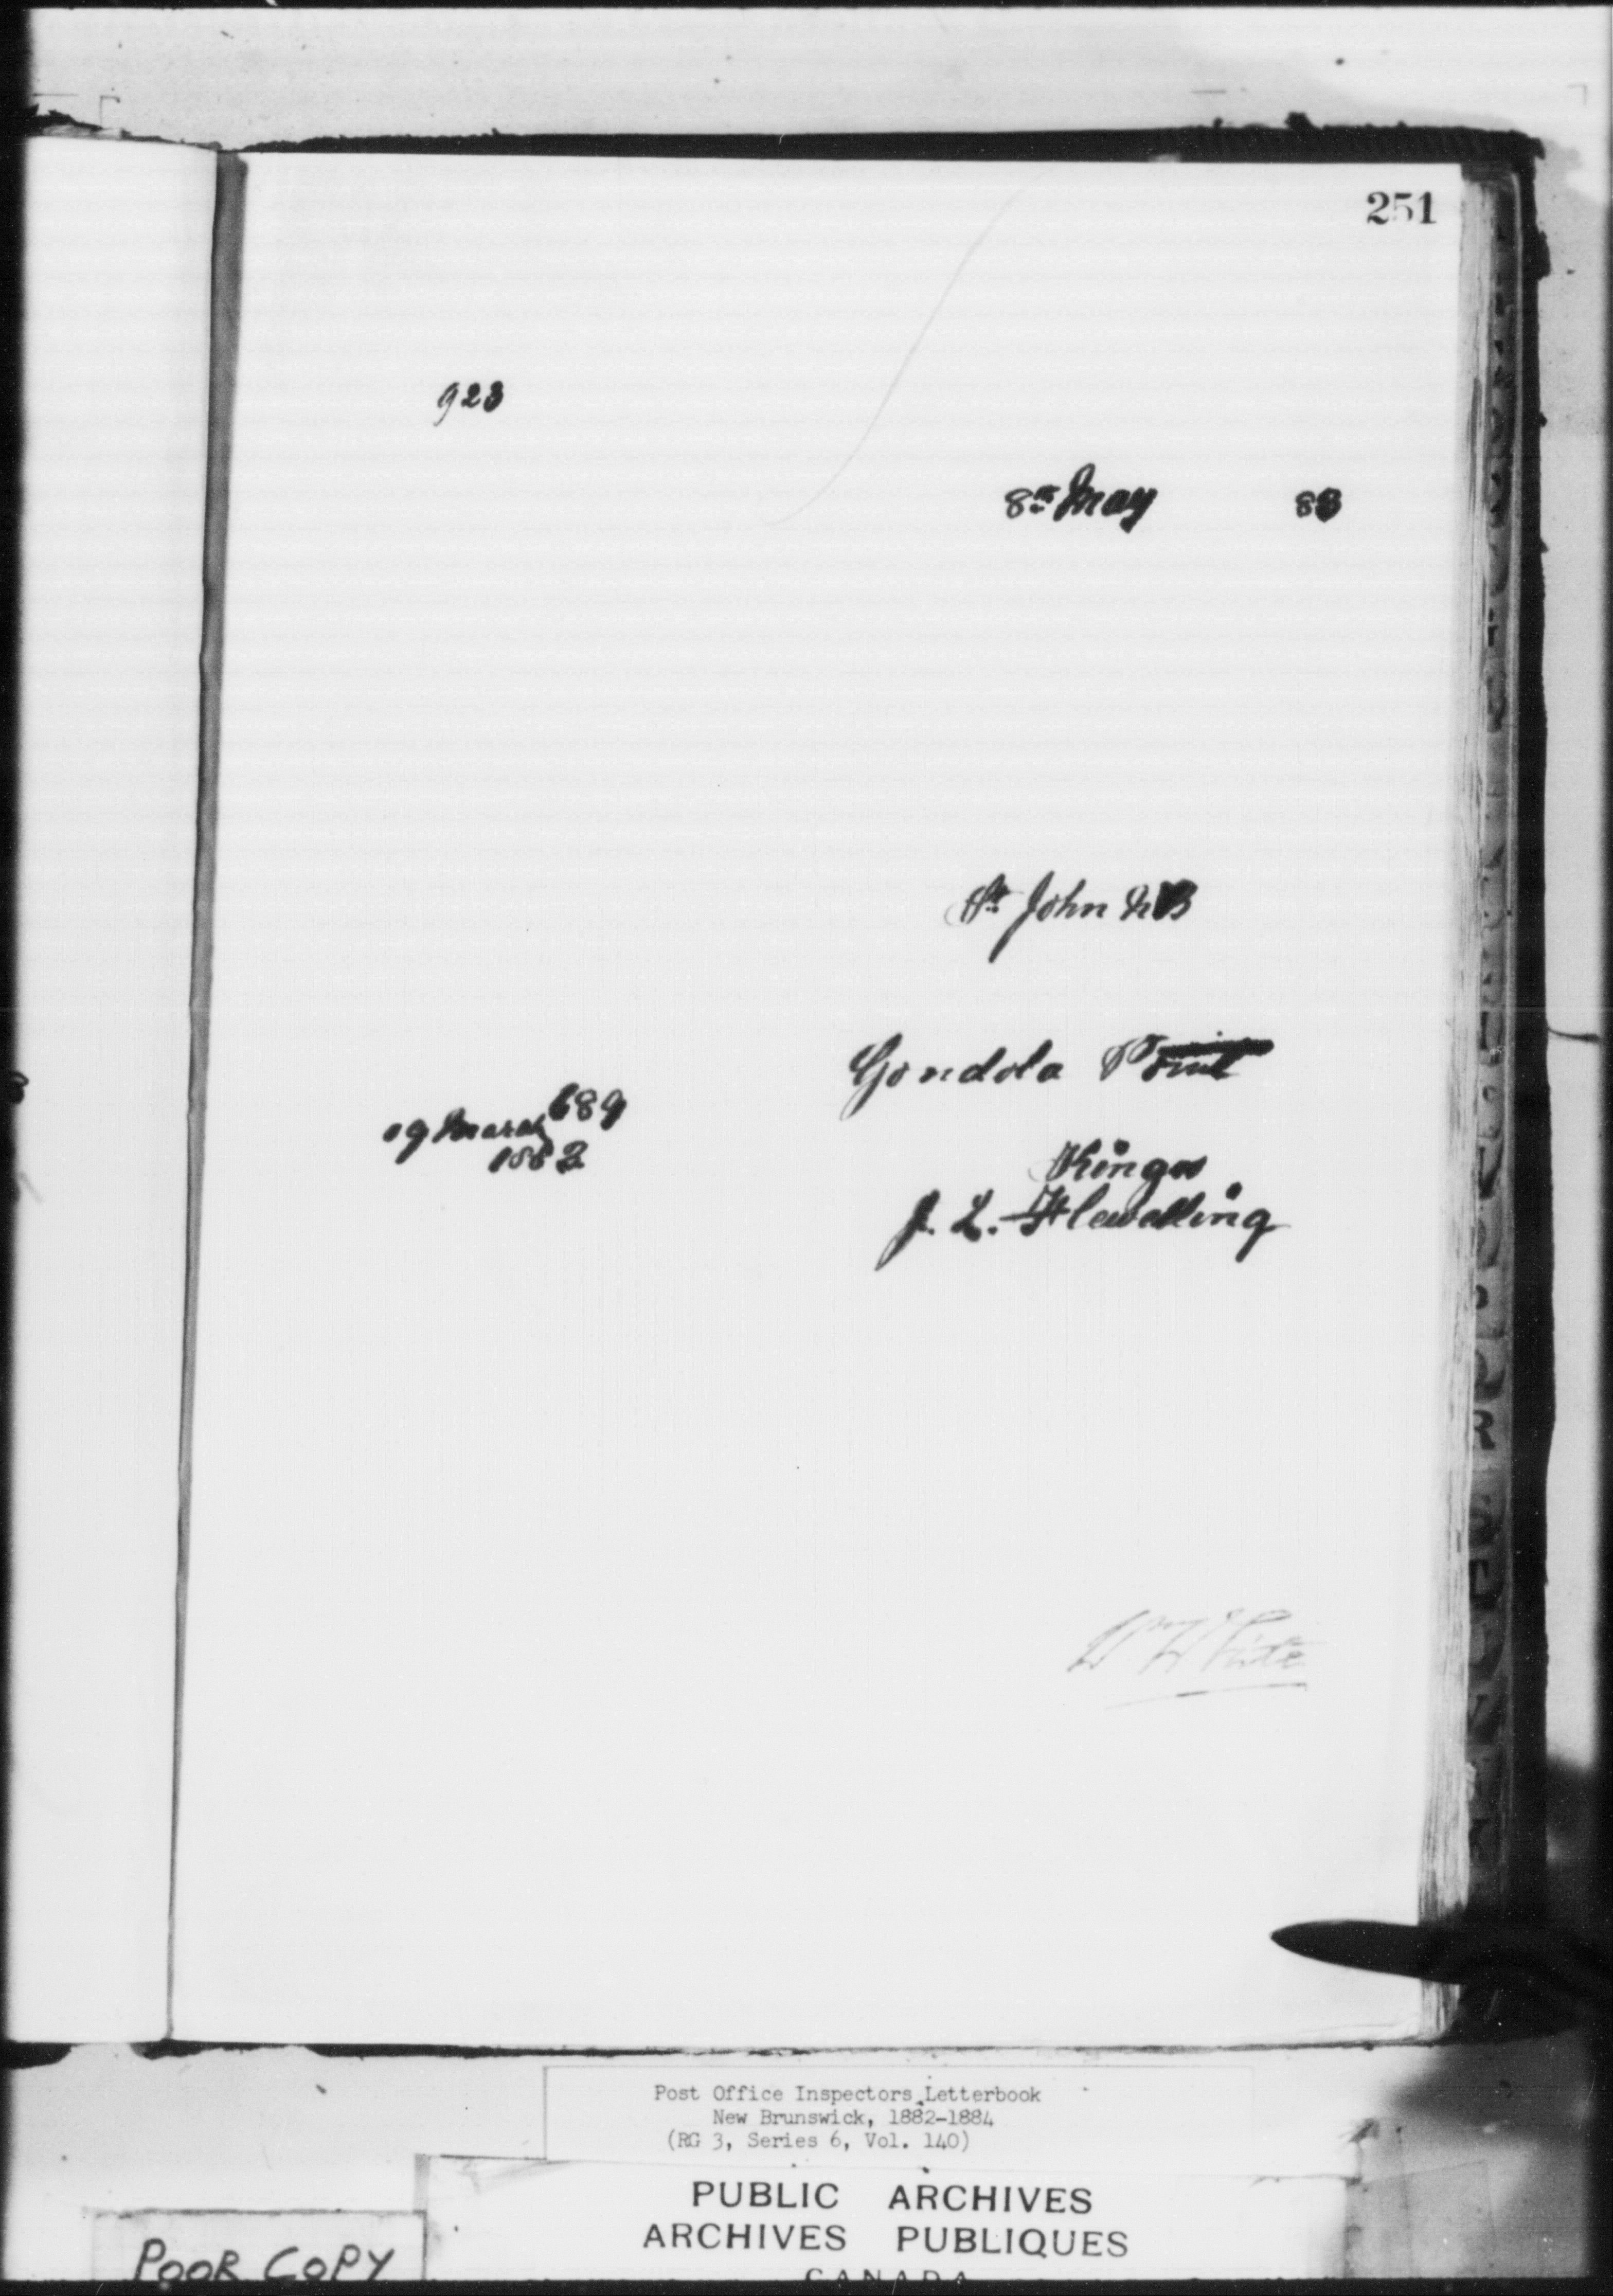 251
923
8th May 83
St John NB
Gondola Point
689
19 March
1882
Kings
J. L. Flewelling
W White
Post Office Inspectors Letterbook
New Brunswick, 1882-1884
(RG 3, Series 6, Vol. 140)
PUBLIC ARCHIVES
ARCHIVES PUBLIQUES
CANADA
POOR COPY